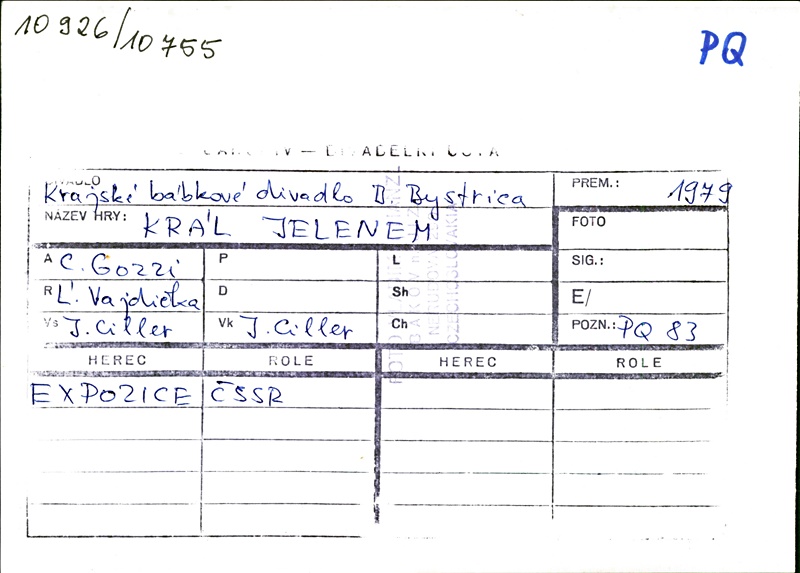 10 926/10 755
PQ
DIVADLO
Krajské bábkové divadlo B. Bystrica
PREM.: 1979
NÁZEV HRY: KRÁL JELENEM
FOTO
A C. Gozzi P L SIG.:
R Ľ. Vajdička D Sh E/
Vs J. Ciller Vk J. Ciller Ch POZN.: PQ 83
HEREC ROLE HEREC ROLE
EXPOZICE ČSSR